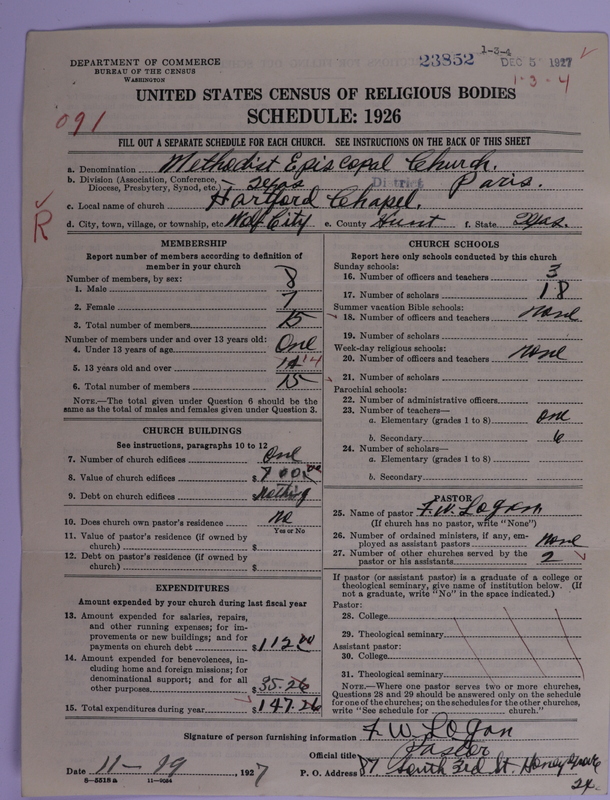 DEPARTMENT OF COMMERCE
BUREAU OF THE CENSUS
WASHINGTON
23852 1-3-4
DEC 5 1927
1-3-4
UNITED STATES CENSUS OF RELIGIOUS BODIES
SCHEDULE: 1926
091
FILL OUT A SEPARATE SCHEDULE FOR EACH CHURCH. SEE INSTRUCTIONS ON THE BACK OF THIS SHEET
a. Denomination Methodist Episcopal Church.
b. Division (Association, Conference, Diocese, Presbytery, Synod, etc.) Texas District Paris.
c. Local name of church Hartford Chapel.
R
d. City, town, village, or township, etc. Wolf City e. County Hunt f. State Texas.
MEMBERSHIP
Report number of members according to definition of
member in your church
Number of members, by sex:
1. Male 8
2. Female 7
3. Total number of members 15
Number of members under and over 13 years old:
4. Under 13 years of age One
5. 13 years old and over 14 14
6. Total number of members 15
NOTE.—The total given under Question 6 should be the
same as the total of males and females given under Question 3.
CHURCH BUILDINGS
See instructions, paragraphs 10 to 12
7. Number of church edifices One
8. Value of church edifices $
9. Debt on church edifices Nothing
10. Does church own pastor's residence No
Yes or No
11. Value of pastor's residence (if owned by
church) $
12. Debt on pastor's residence (if owned by
church) $
EXPENDITURES
Amount expended by your church during last fiscal year
13. Amount expended for salaries, repairs,
and other running expenses; for im-
provements or new buildings; and for
payments on church debt $112.00
14. Amount expended for benevolences, in-
cluding home and foreign missions; for
denominational support; and for all
other purposes $35.26
15. Total expenditures during year $147.26
CHURCH SCHOOLS
Report here only schools conducted by this church
Sunday schools:
16. Number of officers and teachers 3
17. Number of scholars 18
Summer vacation Bible schools:
18. Number of officers and teachers none
19. Number of scholars
Week-day religious schools:
20. Number of officers and teachers none
21. Number of scholars
Parochial schools:
22. Number of administrative officers
23. Number of teachers—
a. Elementary (grades 1 to 8) one
b. Secondary 6
24. Number of scholars—
a. Elementary (grades 1 to 8)
b. Secondary
PASTOR
25. Name of pastor F. W. Logan
(If church has no pastor, write "None")
26. Number of ordained ministers, if any, em-
ployed as assistant pastors None
27. Number of other churches served by the
pastor or his assistants 2
If pastor (or assistant pastor) is a graduate of a college or
theological seminary, give name of institution below. (If
not a graduate, write "No" in the space indicated.)
Pastor:
28. College
29. Theological seminary
Assistant pastor:
30. College
31. Theological seminary
NOTE.—Where one pastor serves two or more churches,
Questions 28 and 29 should be answered only on the schedule
for one of the churches; on the schedules for the other churches,
write "See schedule for church."
Signature of person furnishing information F. W. Logan
Official title Pastor
Date 11-19, 1927 P. O. Address South 3rd St. Honey Grove
Tx.
8—5518a 11—9054